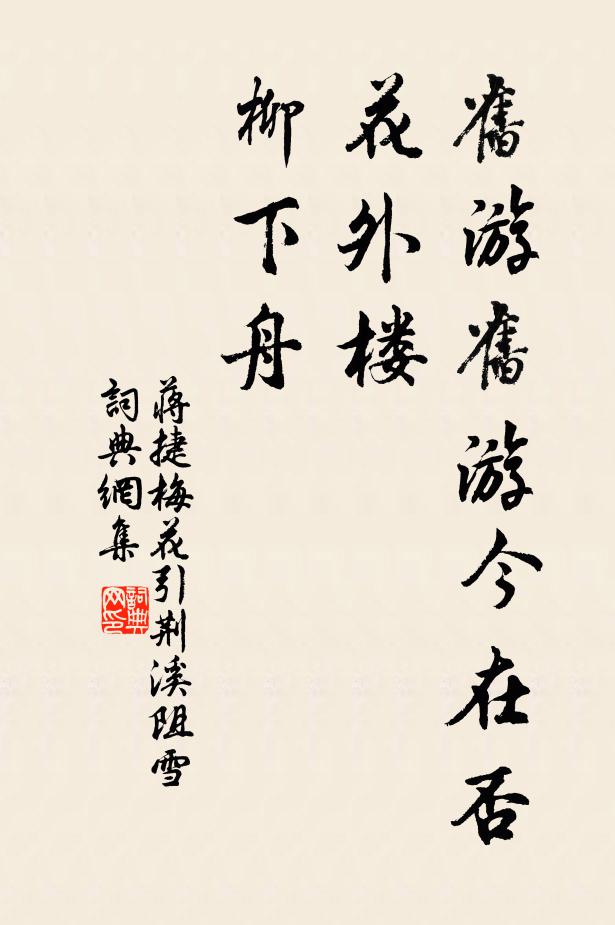 舊游舊游今在否
花外楼
柳下舟
蔣捷梅花引荆溪阻雪
詞典網集
詞典网印